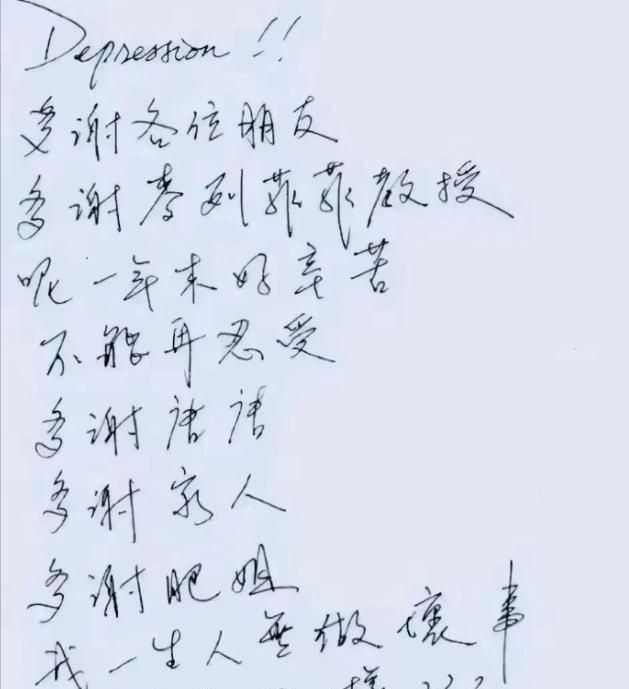 Depression !!
多谢各位朋友
多谢麥列菲菲教授
呢一年来好辛苦
不能再忍受
多谢唐唐
多谢家人
多谢肥姐
我一生人無做壞事
樣???